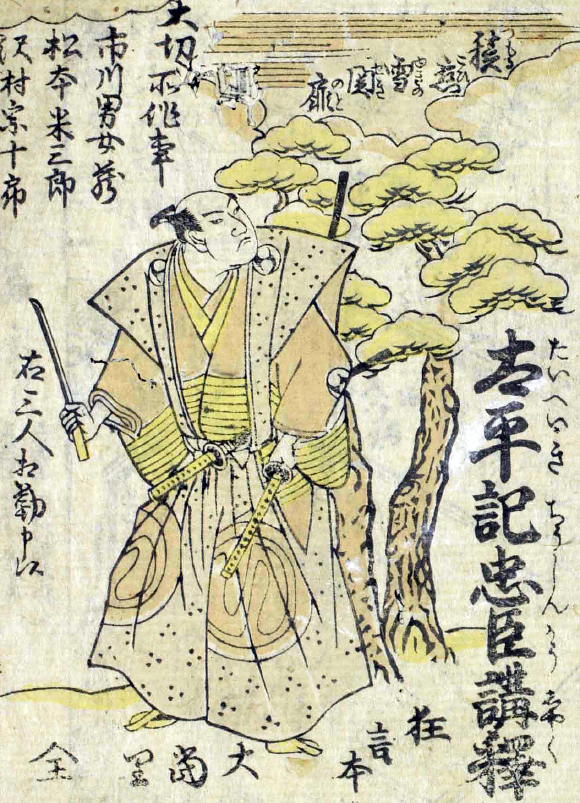 積戀雪関扉
太平記忠臣講釋
たいへいき ちうしんかうしやく
大切所作事
市川男女蔵
松本米三郎
沢村宗十郎
右三人相勤申候
狂言本
大當里
全